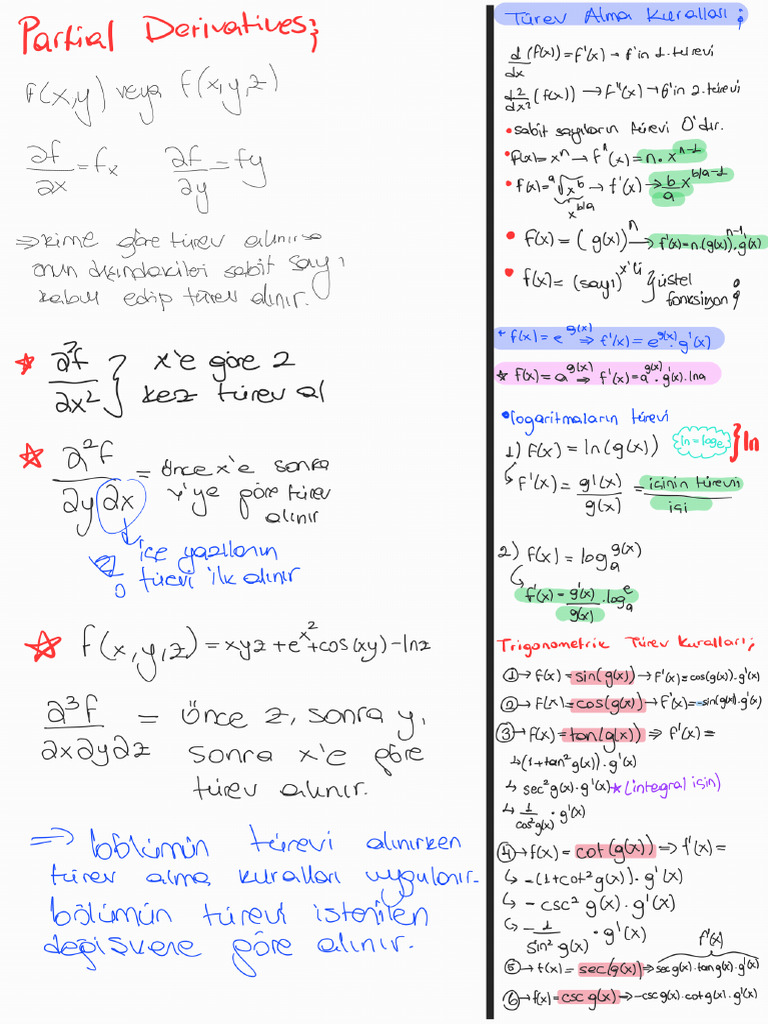 Partial Derivatives;
f(x,y) veya f(x,y,z)
∂f/∂x = fx   ∂f/∂y = fy
⇒ kime göre türev alınırsa
onun dışındakileri sabit sayı
kabul edip türev alınır.
★ ∂²f/∂x² } x'e göre 2
kez türev al
★ ∂²f/∂y∂x = önce x'e sonra
y'ye göre türev
alınır
içe yazılanın
türevi ilk alınır
★ f(x,y,z) = xyz + e^x² + cos(xy) - lnz
∂³f/∂x∂y∂z = Önce z, sonra y,
sonra x'e göre
türev alınır.
⇒ bölümün türevi alınırken
türev alma kuralları uygulanır.
bölümün türevi istenilen
değişkene göre alınır.
Türev Alma Kuralları;
d/dx (f(x)) = f'(x) → f'in 1. türevi
d²/dx² (f(x)) → f''(x) → f'in 2. türevi
• sabit sayıların türevi 0'dır.
• f(x) = x^n → f'(x) = n.x^(n-1)
• f(x) = ᵃ√x^b → f'(x) → b/a x^(b/a-1)
x^(b/a)
• f(x) = (g(x))^n → f'(x) = n.(g(x))^(n-1).g'(x)
• f(x) = (sayı)^x'li } üstel
fonksiyon
* f(x) = e^g(x) ⇒ f'(x) = e^g(x).g'(x)
* f(x) = a^g(x) ⇒ f'(x) = a^g(x).g'(x).lna
• logaritmaların türevi
1) f(x) = ln(g(x))   ln = log_e } ln
↳ f'(x) = g'(x)/g(x) = içinin türevi/içi
2) f(x) = log_a^g(x)
f'(x) = g'(x)/g(x) . log_a^e
Trigonometrik Türev Kuralları;
① → f(x) = sin(g(x)) → f'(x) = cos(g(x)).g'(x)
② → f(x) = cos(g(x)) → f'(x) = -sin(g(x)).g'(x)
③ → f(x) = tan(g(x)) ⇒ f'(x) =
↳ (1+tan²g(x)).g'(x)
↳ sec²g(x).g'(x) ★ (integral için)
↳ 1/cos²g(x) . g'(x)
④ → f(x) = cot(g(x)) ⇒ f'(x) =
↳ -(1+cot²g(x)).g'(x)
↳ -csc²g(x).g'(x)
↳ -1/sin²g(x) . g'(x)
f'(x)
⑤ → f(x) = sec(g(x)) ⇒ secg(x).tang(x).g'(x)
⑥ → f(x) = csc g(x) ⇒ -cscg(x).cotg(x).g'(x)